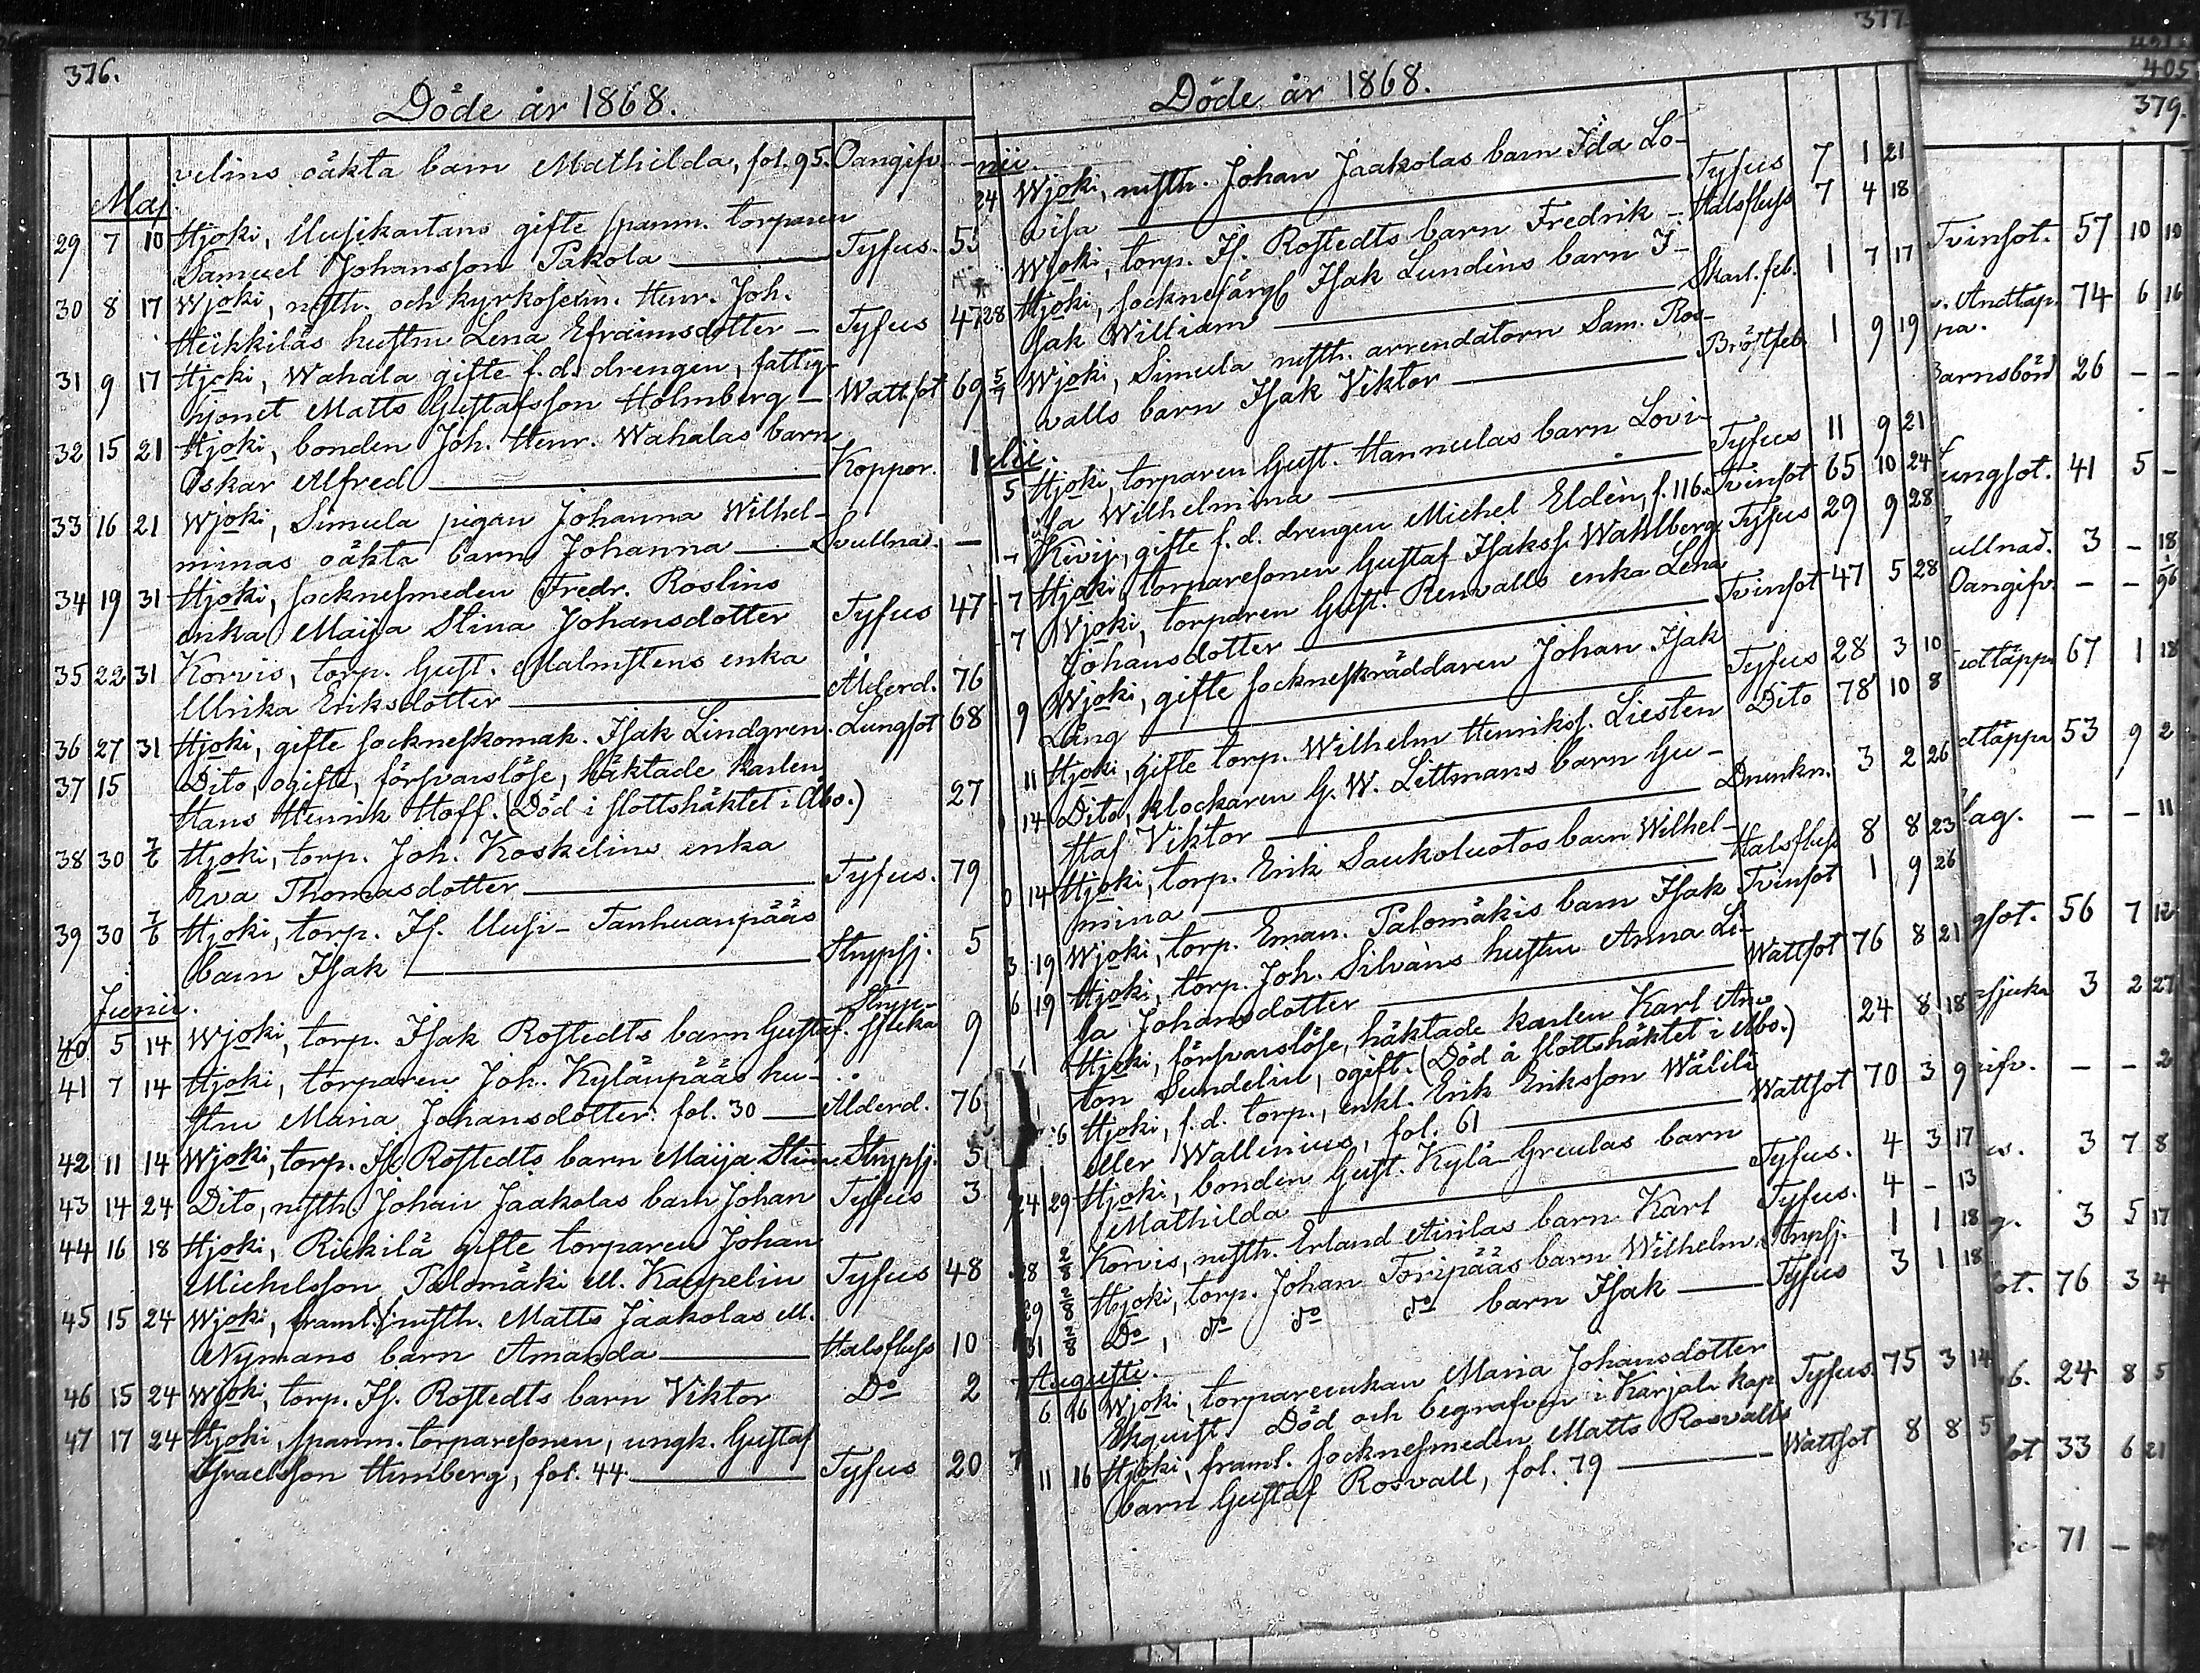 376.
Döde år 1868.
velins oäkta barn Mathilda, fol. 95. Oangifv. —
Maj.
29 7 10 Hjoki, Uusikartans gifte spanm. torparen
Samuel Johansson Pakola — Tyfus. 55
30 8 17 Wjoki, nysth. och kyrkoselm. Henr. Joh.
Heikkiläs hustru Lena Efraimsdotter — Tyfus 47
31 9 17 Hjoki, Wahala gifte f.d. drengen, fattig-
hjonet Matts Gustafsson Holmberg — Wattsot 69
32 15 21 Hjoki, bonden Joh. Henr. Wahalas barn
Oskar Alfred — Koppor. 1
33 16 21 Wjoki, Simula pigan Johanna Wilhel-
minas oäkta barn Johanna — Svullnad. —
34 19 31 Hjoki, socknesmeden Fredr. Roslins
enka Maija Stina Johansdotter Tyfus 47
35 22 31 Korvis, torp. Gust. Malmstens enka
Ulrika Eriksdotter — Ålderd. 76
36 27 31 Hjoki, gifte sockneskomak. Isak Lindgren. Lungsot 68
37 15 Dito, ogifte, försvarslöse, häktade karlen
Hans Henrik Hoff. (Död i slottshäktet i Åbo.) 27
38 30 7/6 Hjoki, torp. Joh. Koskelins enka
Eva Thomasdotter — Tyfus. 79
39 30 7/6 Hjoki, torp. Is. Uusi-Tanhuanpääs
barn Isak — Strypsj. 5
Junii.
40 5 14 Wjoki, torp. Isak Rostedts barn Gustaf. Stryp-
sjuka 9
41 7 14 Hjoki, torparen Joh. Kylänpääs hu-
stru Maria Johansdotter. fol. 30 — Ålderd. 76
42 11 14 Wjoki, torp. Is. Rostedts barn Maija Stina. Strypsj. 5
43 14 24 Dito, nysth. Johan Jaakolas barn Johan Tyfus 3
44 16 18 Hjoki, Rickilä gifte torparen Johan
Michelsson Palomäki M. Kaspelin Tyfus 48
45 15 24 Wjoki, framl. nysth. Matts Jaakolas M.
Nymans barn Amanda — Halsfluss 10
46 15 24 Wjoki, torp. Is. Rostedts barn Viktor Do 2
47 17 24 Hjoki, spanm. torparesonen, ungk. Gustaf
Israelsson Humberg, fol. 44. — Tyfus 20
377.
Döde år 1868.
nii.
24 Wjoki, nysth. Johan Jaakolas barn Ida Lo-
visa — Tyfus 7 1 21
Wjoki, torp. Is. Rostedts barn Fredrik — Halsfluss 7 4 18
28 Hjoki, socknefärg. Isak Lundèns barn I-
sak William — Skarl. feb. 1 7 17
5/7 Wjoki, Simula nysth. arrendatorn Sam. Ros-
valls barn Isak Viktor — Bröstfeb. 1 9 19
ulii.
5 Hjoki, torparen Gust. Hannulas barn Lovi-
sa Wilhelmina — Tyfus 11 9 21
Kivij, gifte f.d. drengen Michel Eldèn, f. 116. Tvinsot 65 10 24
7 Hjoki, torparesonen Gustaf Isakss. Wahlberg. Tyfus 29 9 28
7 Wjoki, torparen Gust. Renvalls enka Lena
Johansdotter — Tvinsot 47 5 28
9 Wjoki, gifte sockneskräddaren Johan Isak
Lång — Tyfus 28 3 10
11 Hjoki, gifte torp. Wilhelm Henrikss. Liesten Dito 78 10 8
14 Dito, klockaren G. W. Littmans barn Gu-
staf Viktor — Drunkn. 3 2 26
14 Hjoki, torp. Erik Saukoluotos barn Wilhel-
mina — Halsfluss 8 8 23
3 19 Wjoki, torp. Eman. Palomäkis barn Isak Tvinsot 1 9 26
6 19 Hjoki, torp. Joh. Silväns hustru Anna Li-
sa Johansdotter — Wattsot 76 8 21
Hjoki, försvarslöse, häktade karlen Karl An-
ton Sundelin, ogift. (Död å slottshäktet i Åbo.) 24 8 18
6 Hjoki, f.d. torp., enkl. Erik Eriksson Wälilä
eller Wallenius, fol. 61 — Wattsot 70 3 9
24 29 Hjoki, bonden Gust. Kylä-Greulas barn
Mathilda — Tyfus. 4 3 17
28 2/8 Korvis, nysth. Erland Anilas barn Karl Tyfus. 4 - 13
29 2/8 Hjoki, torp. Johan Toripääs barn Wilhelm. Strypsj. 1 1 18
31 2/8 Do, do do barn Isak — Tyfus 3 1 18
Augusti.
6 16 Wjoki, torpareenkan Maria Johansdotter
Ekquist. Död och begrafven i Karjala kap. Tyfus. 75 3 14
11 16 Hjoki, framl. socknesmeden Matts Rosvalls
barn Gustaf Rosvall, fol. 79 — Wattsot 8 8 5
405
379.
Tvinsot. 57 10 10
Andtäp-
pa. 74 6 16
Barnsbörd 26 - -
ungsot. 41 5 -
ullnad. 3 - 18
Oangifv. - -
dtäppa 67 1 18
dtäppa 53 9 2
lag. - - 11
gsot. 56 7 12
sjuka 3 2 27
ifv. - - 2
3 7 8
3 5 17
ot. 76 3 4
24 8 5
ot 33 6 21
71 -